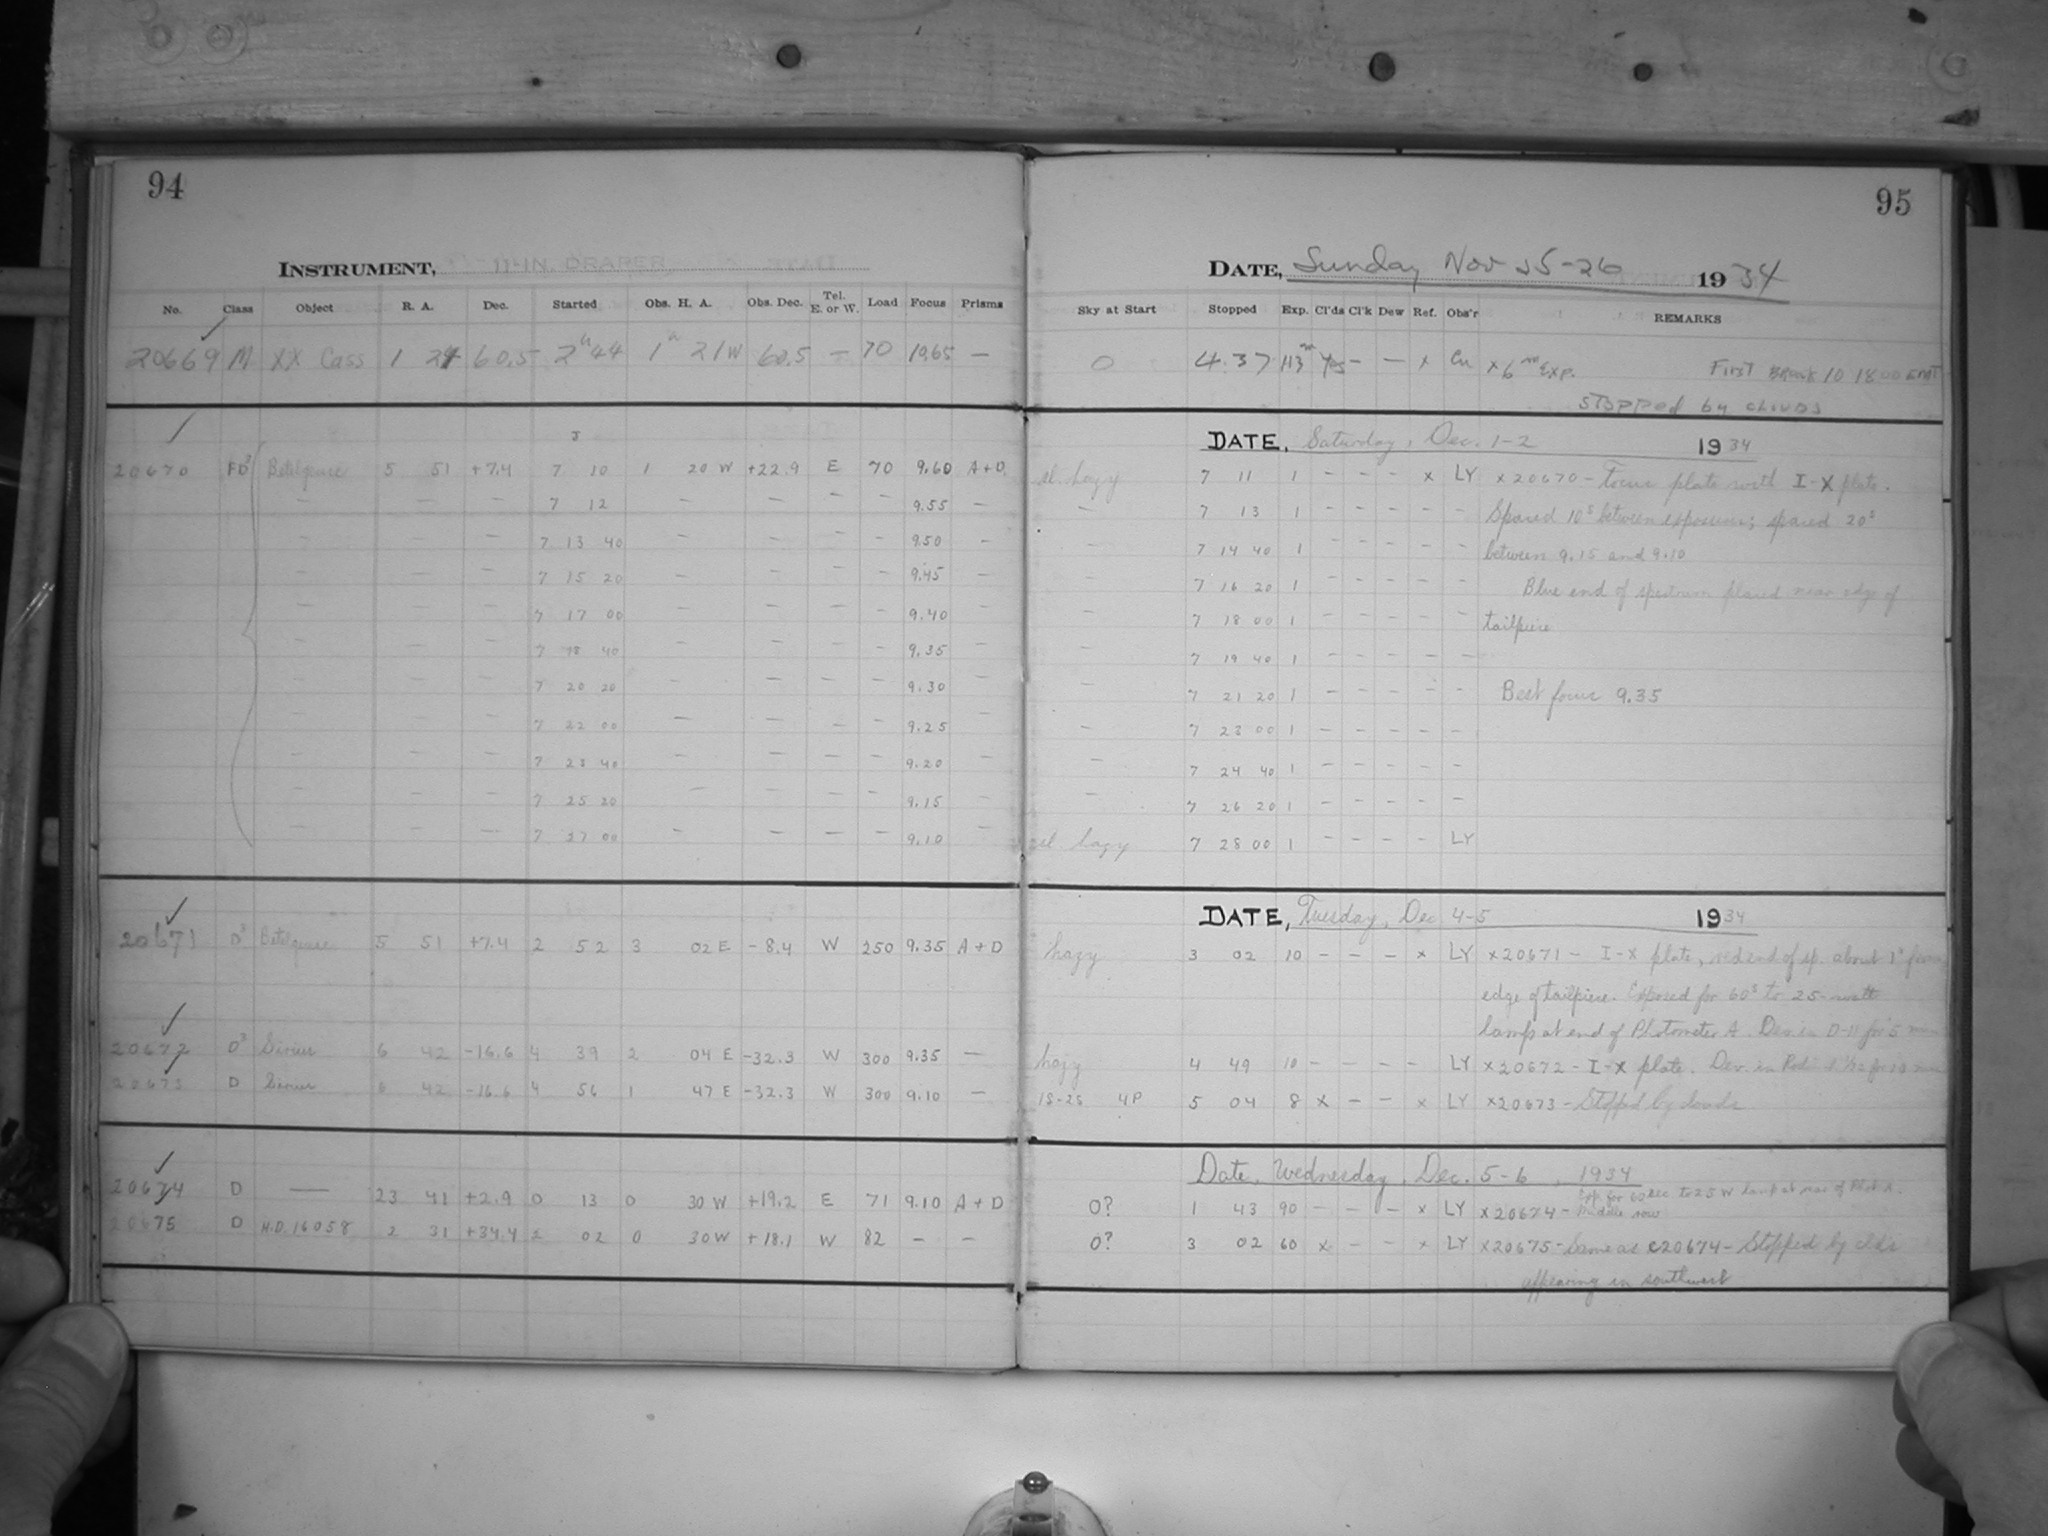 94
INSTRUMENT, 11-IN. DRAPER
No. Class Object R. A. Dec. Started Obs. H. A. Obs. Dec. Tel. E. or W. Load Focus Prisms
20669 M XX Cass 1 24 60.5 2h 44 1h 21W 60.5 - 70 10.65 -
20670 FD3 Betelgeuse 5 51 +7.4 7 10 1 20 W +22.9 E 70 9.60 A+D
- - - 7 12 - - - - 9.55 -
- - - 7 13 40 - - - - 9.50 -
- - - 7 15 20 - - - - 9.45 -
- - - 7 17 00 - - - - 9.40 -
- - - 7 18 40 - - - - 9.35 -
- - - 7 20 20 - - - - 9.30 -
- - - 7 22 00 - - - - 9.25 -
- - - 7 23 40 - - - - 9.20 -
- - - 7 25 20 - - - - 9.15 -
- - - 7 27 00 - - - - 9.10 -
20671 D3 Betelgeuse 5 51 +7.4 2 52 3 02 E -8.4 W 250 9.35 A+D
20672 D3 Sirius 6 42 -16.6 4 39 2 04 E -32.3 W 300 9.35 -
20673 D Sirius 6 42 -16.6 4 56 1 47 E -32.3 W 300 9.10 -
20674 D — 23 41 +2.9 0 13 0 30 W +19.2 E 71 9.10 A+D
20675 D H.D. 16058 2 31 +34.4 2 02 0 30 W +18.1 W 82 - -
95
DATE, Sunday Nov 25-26 1934
Sky at Start Stopped Exp. Cl'ds Cl'k Dew Ref. Obs'r REMARKS
0 4.37 113m Yes - - x Cn x 6m Exp. First
Stopped by clouds
DATE, Saturday, Dec. 1-2 1934
sl. hazy 7 11 1 - - - x LY x20670 - Focus plate with I-X plate.
- 7 13 1 - - - - - Spaced 10s between exposures; spaced 20s
- 7 14 40 1 - - - - - between 9.15 and 9.10
- 7 16 20 1 - - - - - Blue end of spectrum placed near edge of
- 7 18 00 1 - - - - - tailpiece
- 7 19 40 1 - - - - -
- 7 21 20 1 - - - - - Best focus 9.35
- 7 23 00 1 - - - - -
- 7 24 40 1 - - - - -
- 7 26 20 1 - - - - -
sl hazy 7 28 00 1 - - - - LY
DATE, Tuesday, Dec 4-5 1934
hazy 3 02 10 - - - x LY x20671 - I-X plate, red end of sp. about 1" from
edge of tailpiece. Exposed for 60s to 25-watt
lamp at end of Photometer A. Dev. in D-11 for 5 min
hazy 4 49 10 - - - - LY x20672 - I-X plate. Dev. in
18-25 4P 5 04 8 x - - x LY x20673 - Stopped by clouds
Date, Wednesday, Dec. 5-6, 1934
Exp. for 60 sec to 25 W lamp at rear of Phot A.
0? 1 43 90 - - - x LY x20674 - Middle row
0? 3 02 60 x - - x LY x20675 - Same as c20674 - Stopped by clds
appearing in southwest